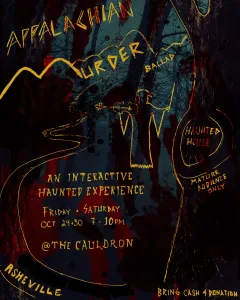 APPALACHIAN
MURDER
BALLAD
HAUNTED
HOUSE
MATURE
AUDIENCE
ONLY
AN INTERACTIVE
HAUNTED EXPERIENCE
FRIDAY + SATURDAY
OCT 29+30 7-10PM
@THE CAULDRON
ASHEVILLE
BRING CASH 4 DONATION